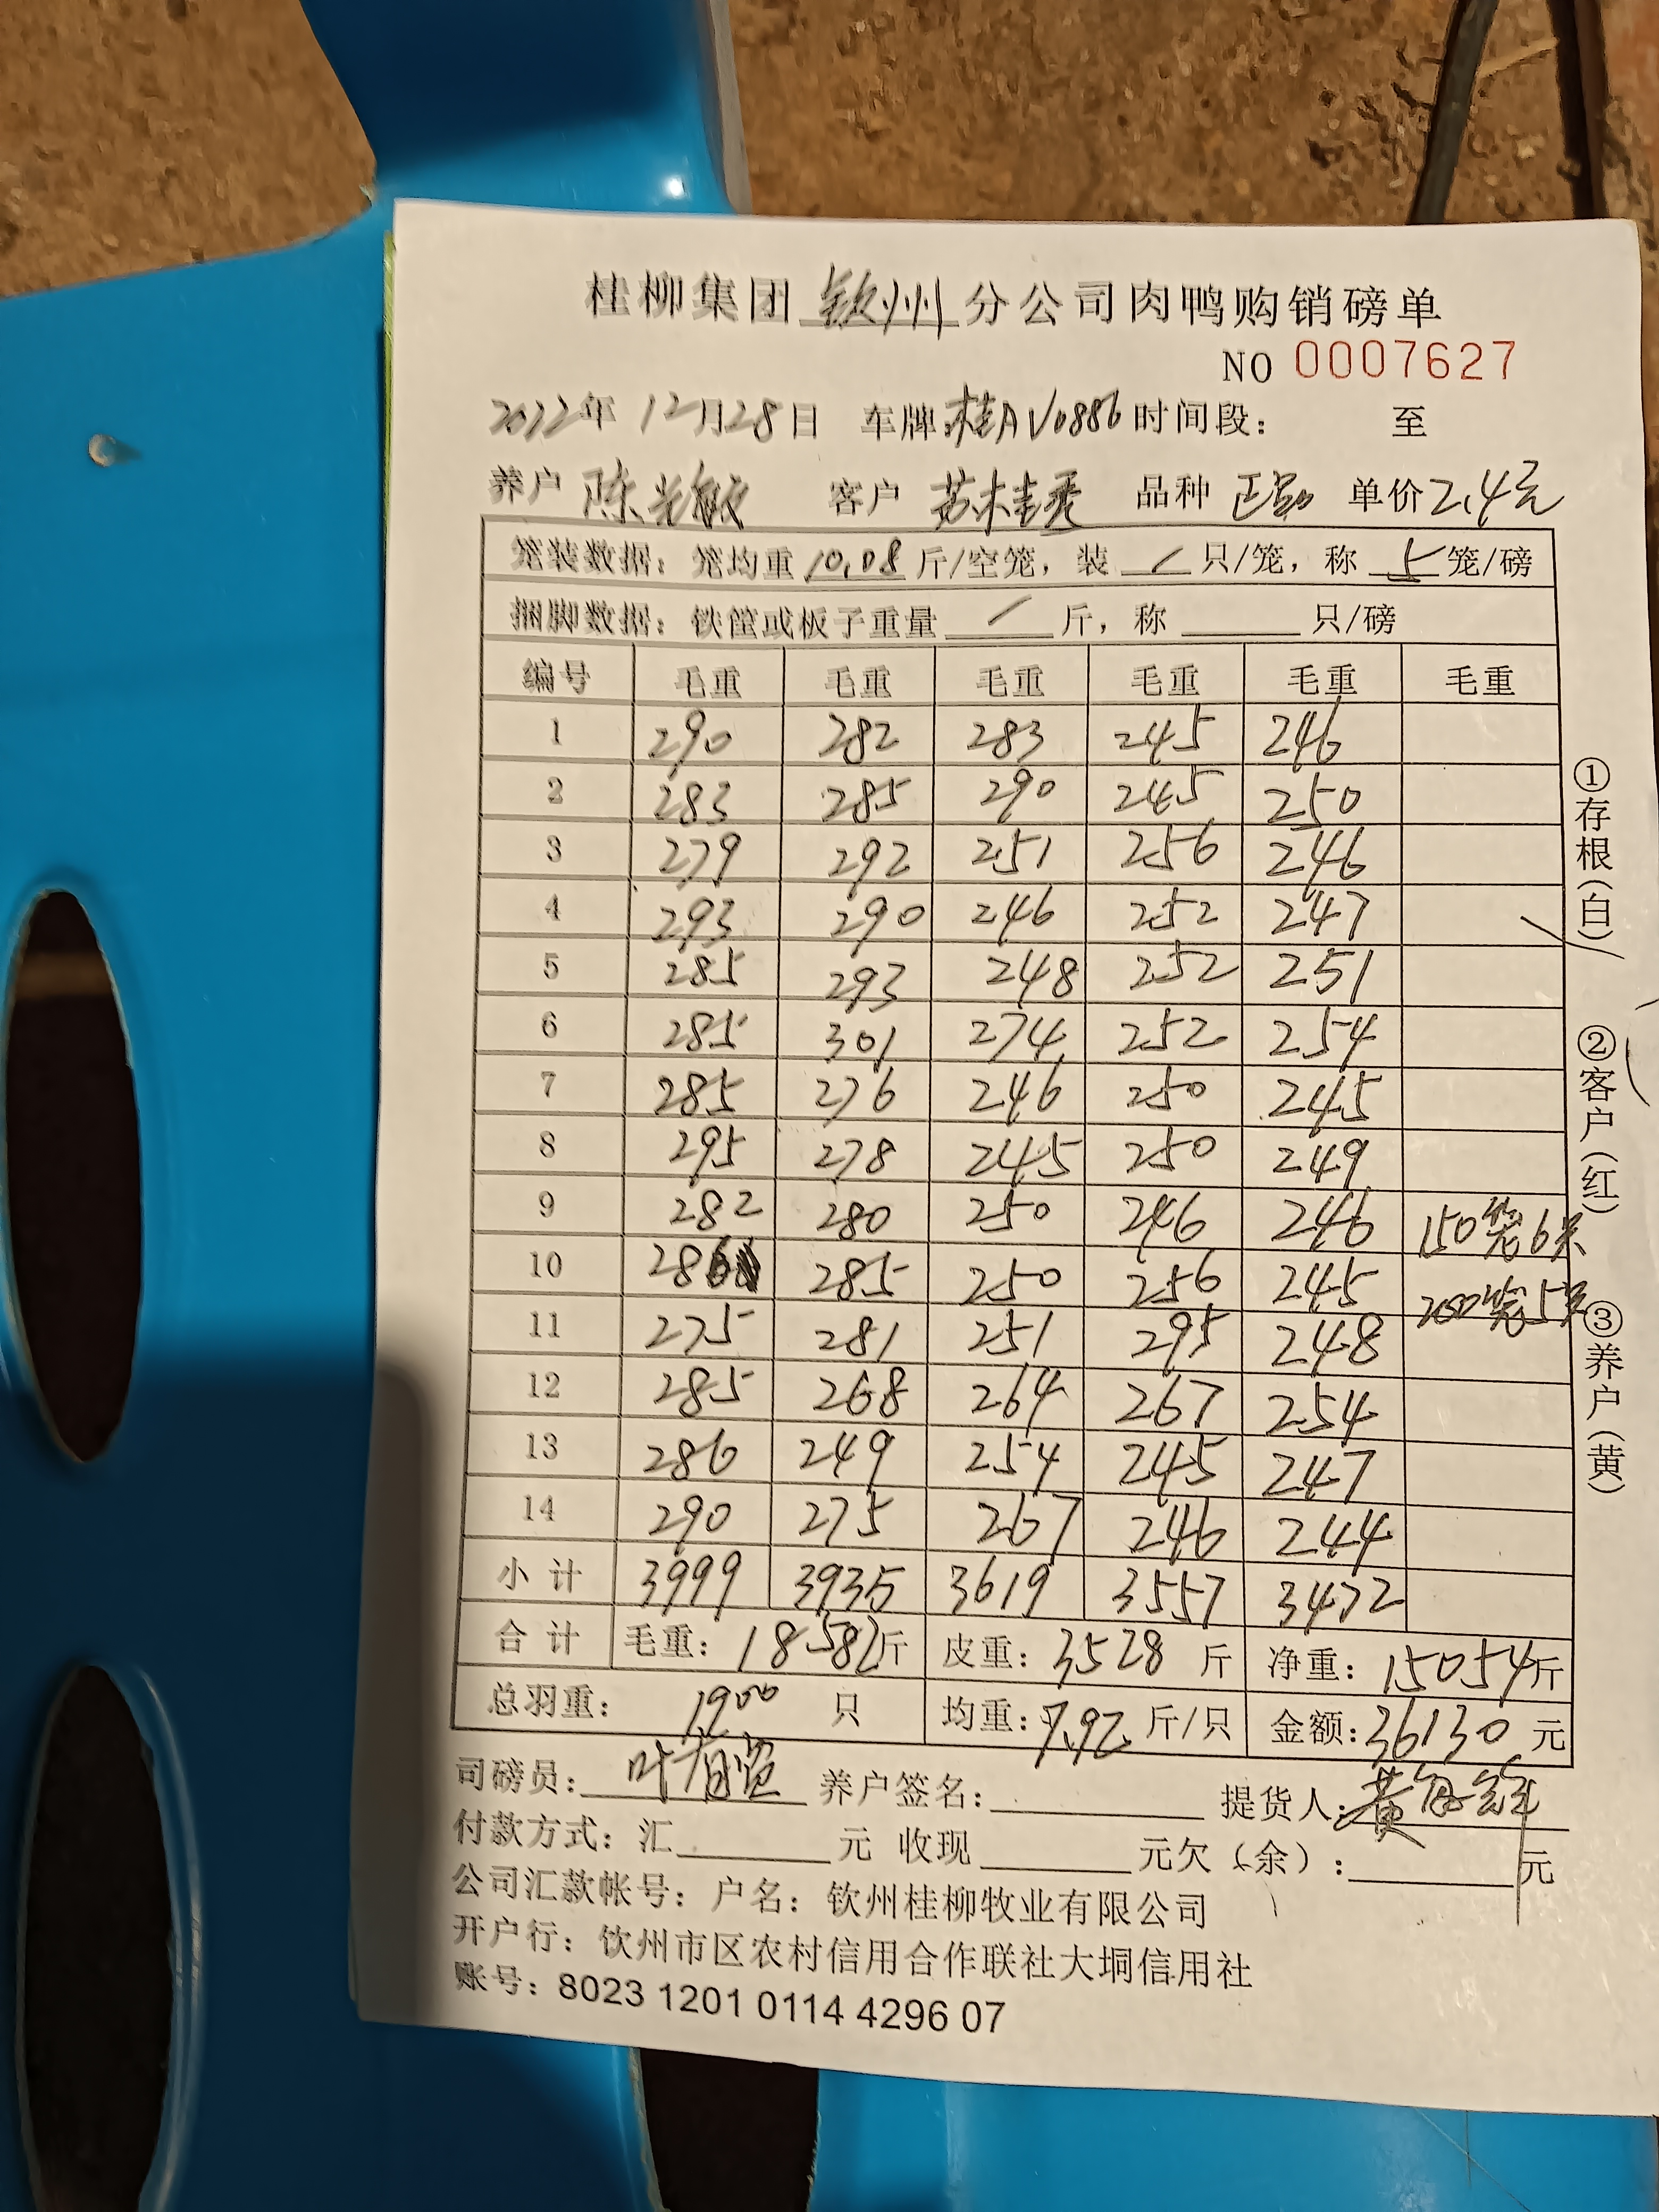 桂柳集团 钦州 分公司肉鸭购销磅单
NO 0007627
2022年 12月28日 车牌:桂AV0886 时间段: 至
养户 陈光敏 客户 苏桂秀 品种 单价 2.4元
笼装数据: 笼均重 10.08 斤/空笼, 装 / 只/笼, 称 5 笼/磅
捆脚数据: 铁筐或板子重量 / 斤, 称 只/磅
编号 毛重 毛重 毛重 毛重 毛重 毛重
1 290 282 283 245 246
2 283 285 290 245 250
3 279 292 251 256 246
4 293 290 246 252 247
5 285 293 248 252 251
6 285 301 274 252 254
7 285 276 246 250 245
8 295 278 245 250 249
9 282 280 250 246 246 150笼6只
10 286 285 250 256 245 200笼5只
11 275 281 251 295 248
12 285 268 264 267 254
13 286 249 254 245 247
14 290 275 267 246 244
小计 3999 3935 3619 3557 3472
合计 毛重: 18582斤 皮重: 3528 斤 净重: 15054斤
总羽重: 1900 只 均重: 7.92 斤/只 金额: 36130 元
司磅员: 养户签名: 提货人: 黄
付款方式: 汇 元 收现 元欠(余): 元
公司汇款帐号: 户名: 钦州桂柳牧业有限公司
开户行: 钦州市区农村信用合作联社大垌信用社
账号: 8023 1201 0114 4296 07
①存根(白)
②客户(红)
③养户(黄)